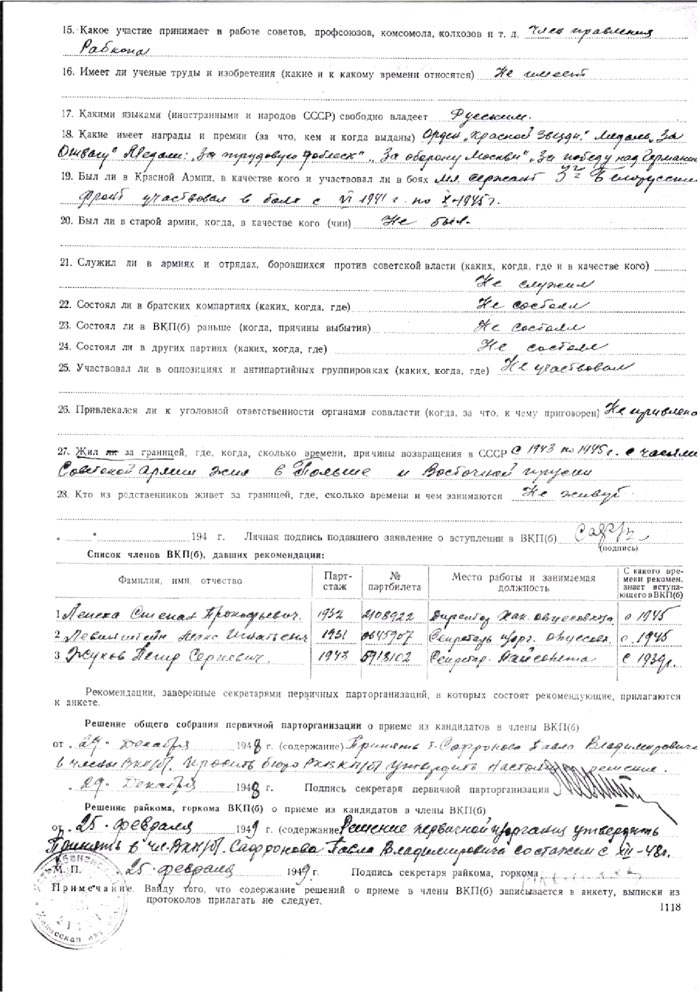 15. Какое участие принимает в работе советов, профсоюзов, комсомола, колхозов и т. д. член правления
Рабкопа
16. Имеет ли ученые труды и изобретения (какие и к какому времени относятся) Не имеет
17. Какими языками (иностранными и народов СССР) свободно владеет Русским.
18. Какие имеет награды и премии (за что, кем и когда выданы) Орден „Красной Звезды" Медаль „За
Отвагу" Медали: „За трудовую доблесть" „За оборону Москвы" „За победу над Германи
19. Был ли в Красной Армии, в качестве кого и участвовал ли в боях мл. сержант 3й Белорусский
фронт участвовал в боях с VI 1941 г. по X-1945 г.
20. Был ли в старой армии, когда, в качестве кого (чин) Не был.
21. Служил ли в армиях и отрядах, боровшихся против советской власти (каких, когда, где и в качестве кого)
Не служил
22. Состоял ли в братских компартиях (каких, когда, где) Не состоял
23. Состоял ли в ВКП(б) раньше (когда, причины выбытия) Не состоял
24. Состоял ли в других партиях (каких, когда, где) Не состоял
25. Участвовал ли в оппозициях и антипартийных группировках (каких, когда, где) Не участвовал
26. Привлекался ли к уголовной ответственности органами соввласти (когда, за что, к чему приговорен) Не привлека
27. Жил ли за границей, где, когда, сколько времени, причины возвращения в СССР с 1943 по 1945 г. с частями
Советской Армии жил в Польше и Восточной Прусии
28. Кто из родственников живет за границей, где, сколько времени и чем занимаются Не живут
„ " 194 г. Личная подпись подавшего заявление о вступлении в ВКП(б)
(подпись)
Список членов ВКП(б), давших рекомендации:
Фамилия, имя, отчество Парт-стаж № партбилета Место работы и занимаемая должность С какого времени рекомен. знает вступающего в ВКП(б)
1 Степан Прокофьевич. 1932 2108922 Директор с 1945
2 1931 0645707 Секретарь с 1945
3 Жуков Петр Сергеевич. 1943 5918102 Секретарь Райсовета с 1939 г.
Рекомендации, заверенные секретарями первичных парторганизаций, в которых состоят рекомендующие, прилагаются
к анкете.
Решение общего собрания первичной парторганизации о приеме из кандидатов в члены ВКП(б)
от „29" Декабря 1948 г. (содержание) Принять т. Сафронова Павла Владимировича
в члены ВКП/б/. Просить бюро РК ВКП/б/ утвердить настоящее решение.
„29" Декабря 1948 г. Подпись секретаря первичной парторганизации
Решение райкома, горкома ВКП(б) о приеме из кандидатов в члены ВКП(б)
от „25" февраля 1949 г. (содержание) Решение первичной парторганиз утвердить
Принять в чл. ВКП/б/. Сафронова Павла Владимировича со стажем с XII-48 г.
М. П. „25" февраля 1949 г. Подпись секретаря райкома, горкома
Примечание Ввиду того, что содержание решений о приеме в члены ВКП(б) записывается в анкету, выписки из
протоколов прилагать не следует.
1118